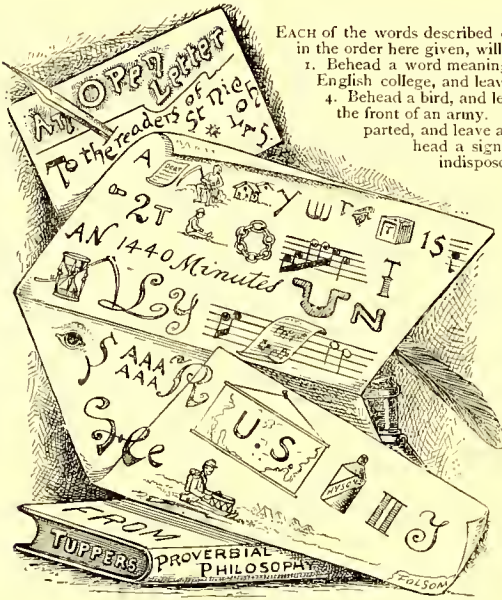 EACH of the words described
in the order here given, will
1. Behead a word meaning
English college, and leav
4. Behead a bird, and le
the front of an army.
parted, and leave a
head a sign
indispose
An Open Letter
To the readers of
St Nicholas.
A DEBT Y W T 1$
2T
AN 1440 Minutes T
LY U N
S AAA R
AAA
U.S.
S ce
Y
FROM
TUPPERS PROVERBIAL
PHILOSOPHY
FOLSOM